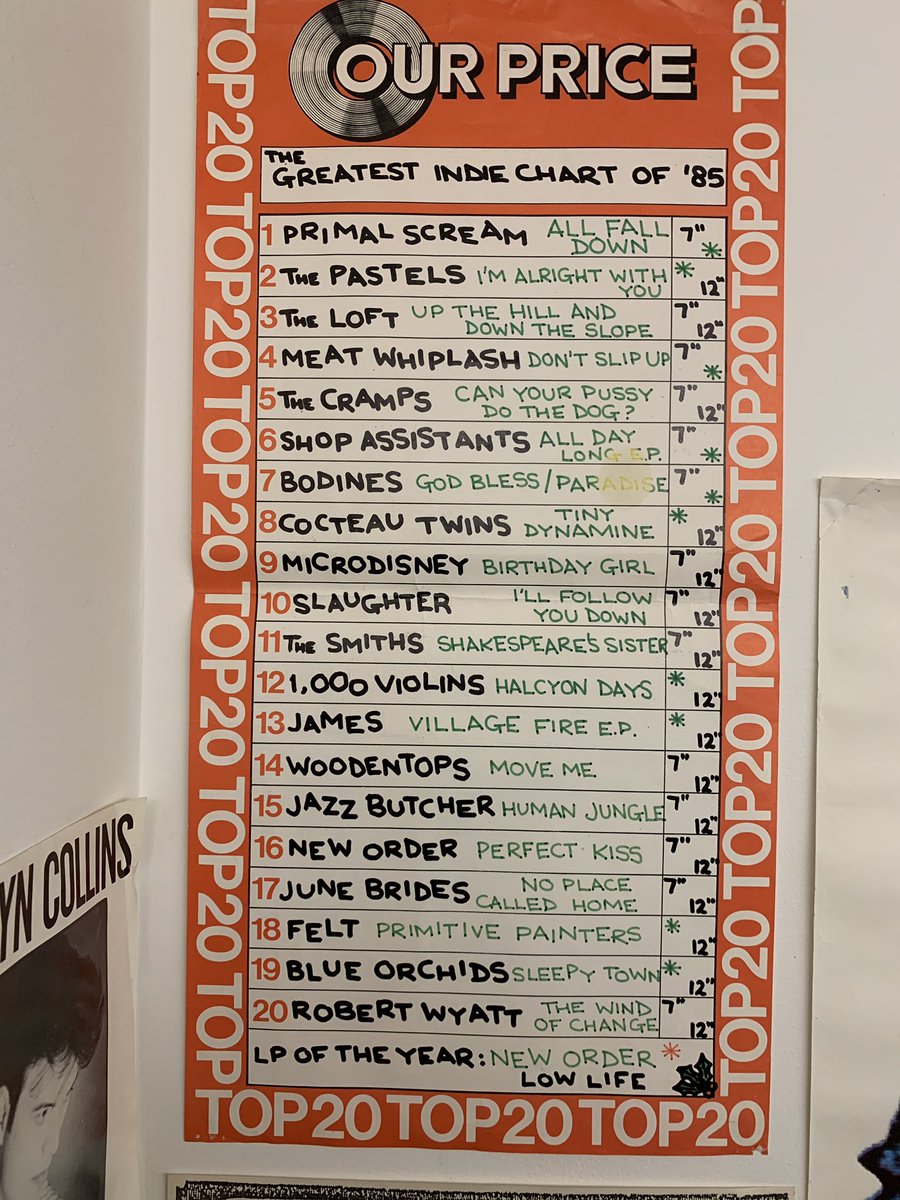 OUR PRICE
THE
GREATEST INDIE CHART OF '85
1 PRIMAL SCREAM ALL FALL DOWN 7" *
2 The PASTELS I'M ALRIGHT WITH YOU * 12"
3 The LOFT UP THE HILL AND DOWN THE SLOPE 7" 12"
4 MEAT WHIPLASH DON'T SLIP UP 7" *
5 The CRAMPS CAN YOUR PUSSY DO THE DOG? 7" 12"
6 SHOP ASSISTANTS ALL DAY LONG E.P. 7" *
7 BODINES GOD BLESS/PARADISE 7" *
8 COCTEAU TWINS TINY DYNAMINE * 12"
9 MICRODISNEY BIRTHDAY GIRL 7" 12"
10 SLAUGHTER I'LL FOLLOW YOU DOWN 7" 12"
11 The SMITHS SHAKESPEARE'S SISTER 7" 12"
12 1,000 VIOLINS HALCYON DAYS * 12"
13 JAMES VILLAGE FIRE E.P. * 12"
14 WOODENTOPS MOVE ME 7" 12"
15 JAZZ BUTCHER HUMAN JUNGLE 7" 12"
16 NEW ORDER PERFECT KISS 7" 12"
17 JUNE BRIDES NO PLACE CALLED HOME 7" 12"
18 FELT PRIMITIVE PAINTERS * 12"
19 BLUE ORCHIDS SLEEPY TOWN * 12"
20 ROBERT WYATT THE WIND OF CHANGE 7" 12"
LP OF THE YEAR: NEW ORDER *
LOW LIFE
TOP20 TOP20 TOP20 TOP20 TOP20 TOP
TOP20 TOP20 TOP20 TOP20 TOP20 TOP
TOP20 TOP20 TOP20
YN COLLINS